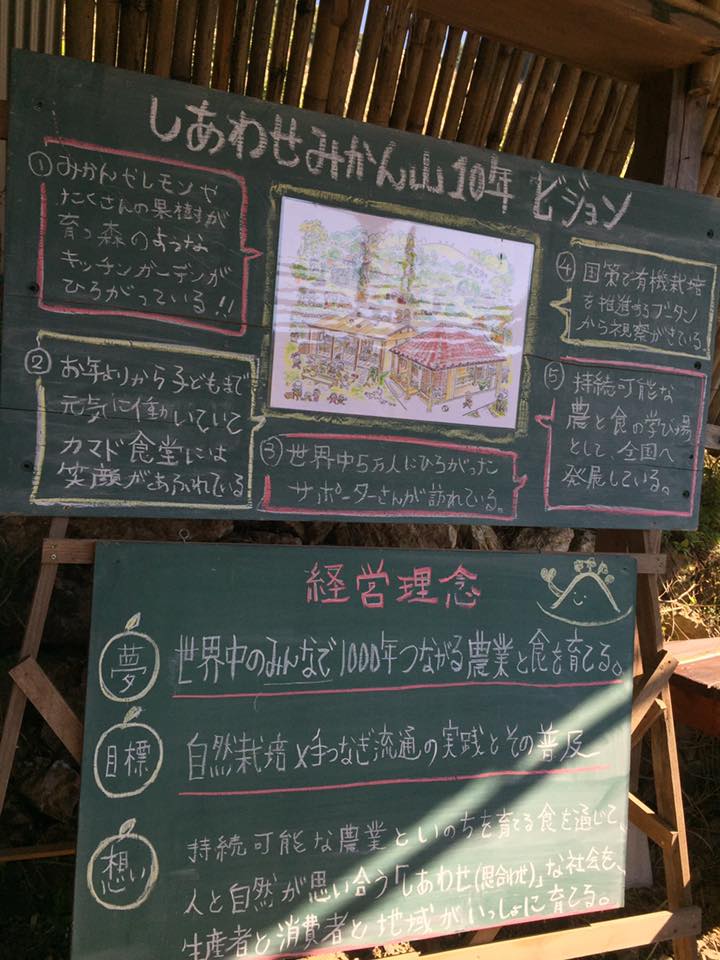 しあわせみかん山10年ビジョン
① みかんやレモンや
たくさんの果樹が
育つ森のような
キッチンガーデンが
ひろがっている!!
② お年よりから子どもまで
元気に働いていて
カマド食堂には
笑顔があふれている
③ 世界中5万人にひろがった
サポーターさんが訪れている。
④ 国策で有機栽培
を推進するブータン
から視察がきている
⑤ 持続可能な
農と食の学び場
として、全国へ
発展している。
経営理念
夢 世界中のみんなで1000年つながる農業と食を育てる。
目標 自然栽培×手つなぎ流通の実践とその普及
想い 持続可能な農業といのちを育てる食を通じて、
人と自然が思い合う「しあわせ(思合わせ)」な社会を、
生産者と消費者と地域がいっしょに育てる。